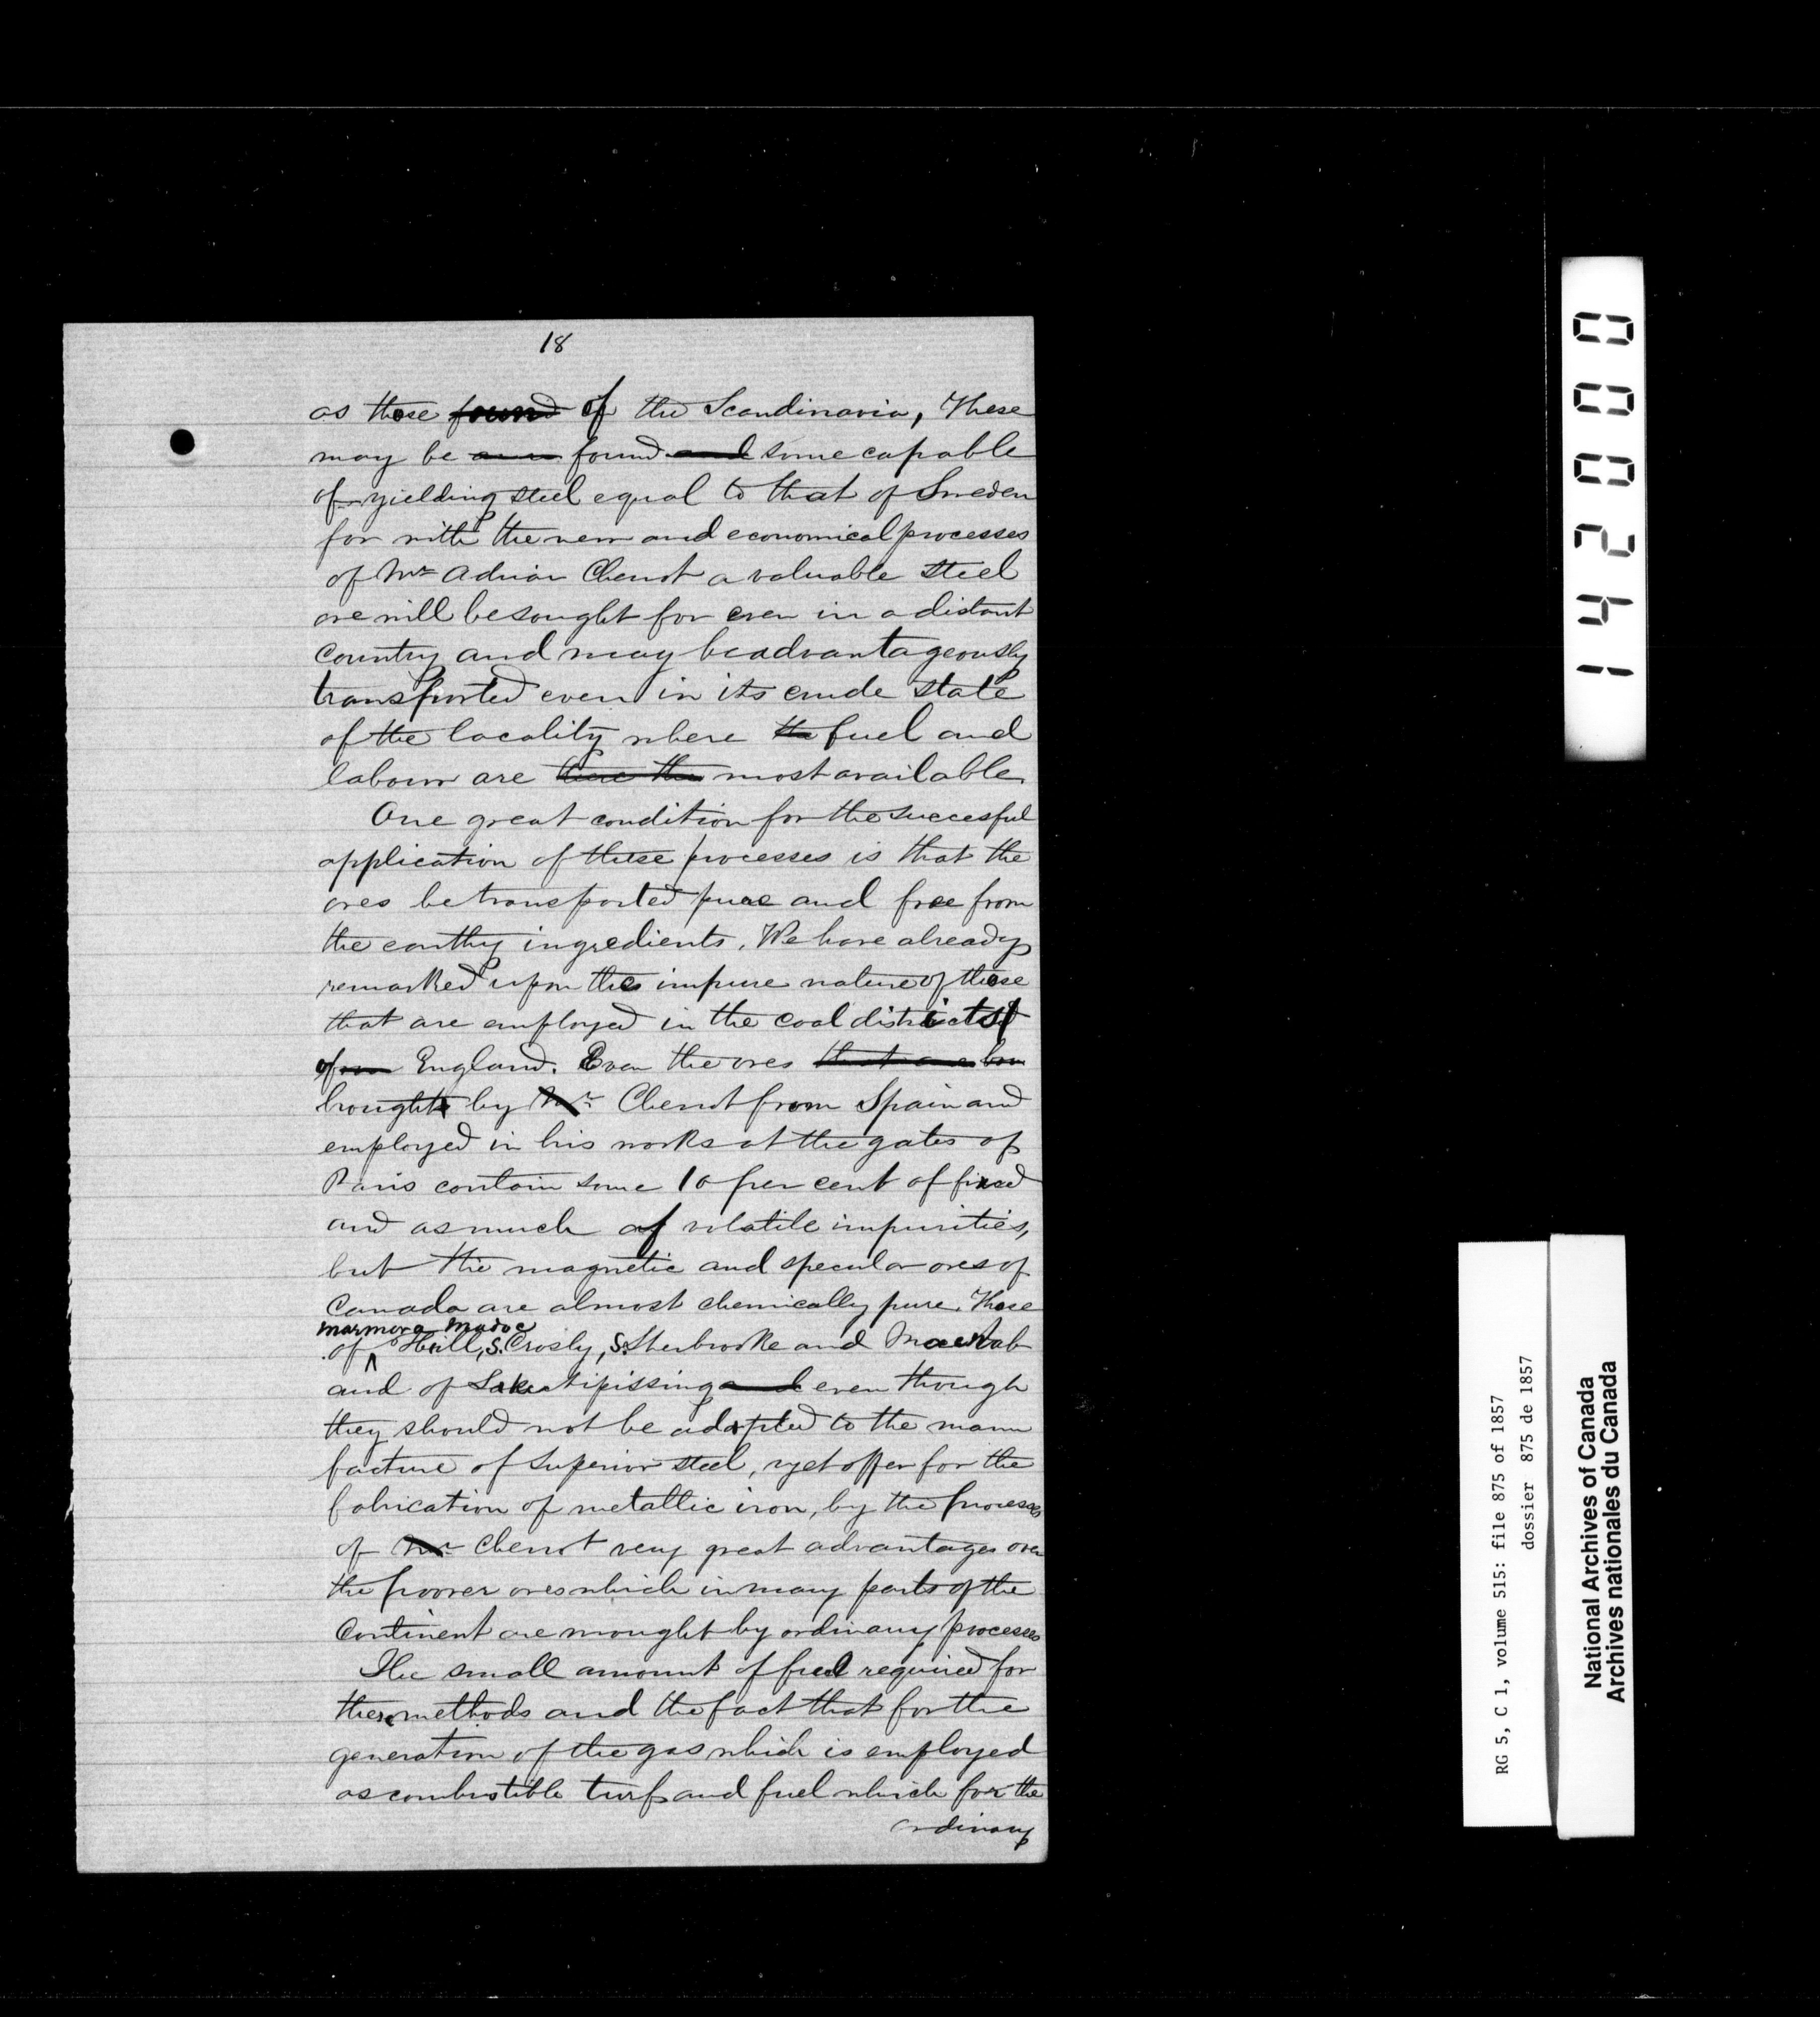 18
as those found of the Scandinavia, These
may be found and some capable
of yielding steel equal to that of Sweden
for with the new and economical processes
of Mr Adrian Chenot a valuable steel
ore will be sought for even in a distant
country and may be advantageously
transported even in its crude state
of the locality where the fuel and
labour are there the most available.
One great condition for the succesful
application of these processes is that the
ores be transported pure and free from
the earthy ingredients. We have already
remarked upon the impure nature of those
that are employed in the coal districts of
England. Even the ores that are
brought by Mr Chenot from Spain and
employed in his works at the gates of
Paris contain some 10 per cent of fixed
and as much of volatile impurities,
but the magnetic and specular ores of
Canada are almost chemically pure. Those
Marmora Madoc
of Hull, S. Crosly, S. Sherbrooke and MacNab
and of Lake Nipissing and even though
they should not be adapted to the manu
facture of superior steel, yet offer for the
fabrication of metallic iron, by the processes
of Mr Chenot very great advantages over
the poorer ores which in many parts of the
Continent are wrought by ordinary processes
The small amount of fuel required for
these methods and the fact that for the
generation of the gas which is employed
as combustible turf and fuel which for the
ordinary
142000
RG 5, C 1, volume 515: file 875 of 1857
dossier 875 de 1857
National Archives of Canada
Archives nationales du Canada